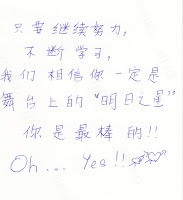 只要继续努力,
不断学习,
我们相信你一定是
舞台上的“明日之星”
你是最棒的!!
Oh... Yes!!